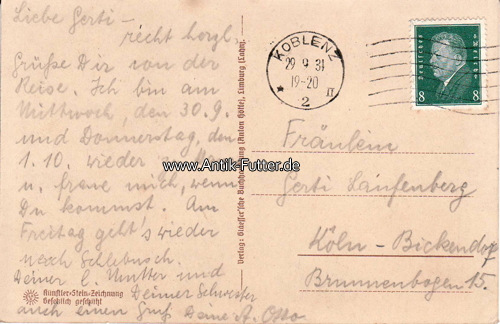 Liebe Gerti –
recht herzl.
Grüße Dir von der
Reise. Ich bin am
Mittwoch, den 30.9.
und Donnerstag, den
1.10. wieder
u. freue mich, wenn
Du kommst. Am
Freitag geht's wieder
nach Schlebusch.
Deiner l. Mutter und
Deiner Schwester
auch einen Gruß Deine A. Otto
Künstler-Stein-Zeichnung
Gesetzlich geschützt
Verlag: Glaeser'sche Buchhandlung (Anton Hötte), Limburg (Lahn).
www.Antik-Futter.de
KOBLENZ
29.9.31
19-20
* 2 II
Deutsches Reich
8 8
Fräulein
Gerti Laufenberg
Köln-Bickendorf
Brunnenbogen 15.